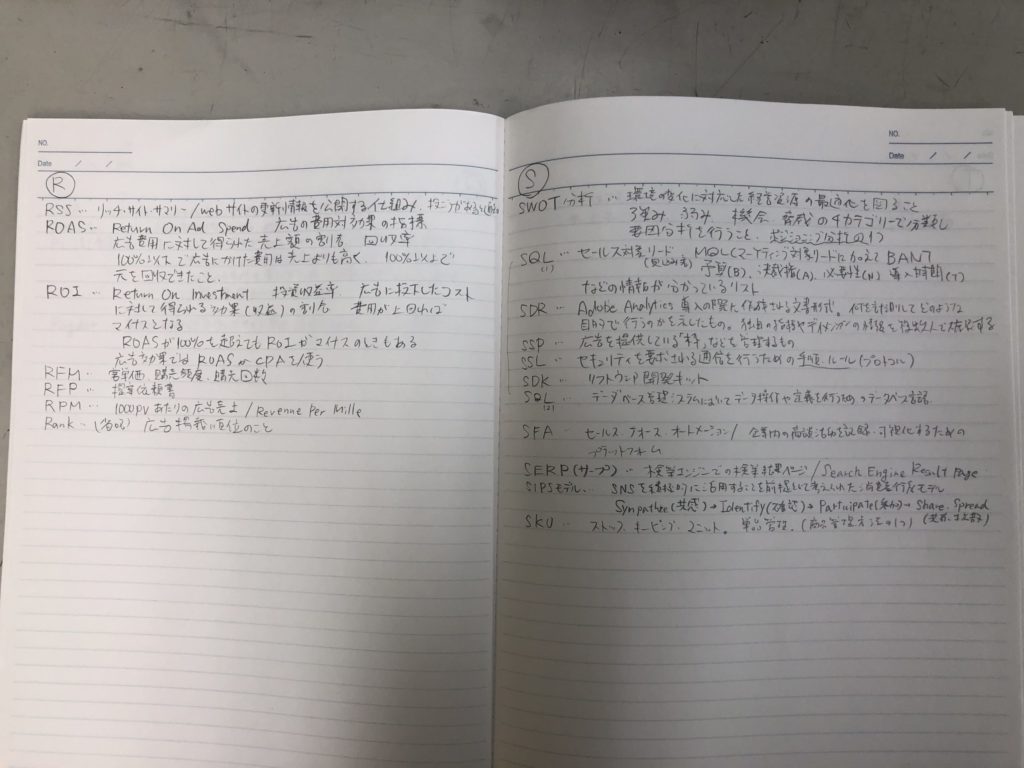 NO.
Date / /
R
RSS… リッチ・サイト・サマリー/webサイトの更新情報を公開する仕組み。
ROAS… Return On Ad Spend 広告の費用対効果の指標
広告費用に対して得られた売上額の割合 回収率
100%以下で広告にかけた費用は売上よりも高く、100%以上で
元を回収できたこと。
ROI… Return On Investment 投資収益率 広告に投下したコスト
に対して得られる効果(収益)の割合 費用が上回れば
マイナスとなる
ROASが100%を超えてもROIがマイナスのときもある
広告効果ではROASかCPAを使う
RFM… 購売頻度、購売回数
RFP… 提案依頼書
RPM… 1000pvあたりの広告売上/Revenue Per Mille
Rank… 広告掲載順位のこと
NO.
Date / /
S
SWOT分析… 環境の変化に対応した経営資源の最適化を図ること
強み 弱み 機会 脅威の4カテゴリーで分類し
要因分析を行うこと。
SQL(1)… セールス対象リード MQL(マーケティング対象リード)に加えてBANT
予算(B)、決裁権(A)、必要性(N)導入時期(T)
などの情報が分かっているリスト
SDR… Adobe Analytics導入の際に作成される文書形式。何を計測してどのような
目的で行うのかを示したもの。
SSP… 広告を提供している
SSL… セキュリティを要求される通信を行うための手順、ルール(プロトコル)
SDK… ソフトウェア開発キット
SQL(2)… データベース管理システムにおいてデータ操作や定義を行うためのデータベース言語
SFA… セールス・フォース・オートメーション/ 企業内の商談活動を記録、可視化するための
プラットフォーム
SERP(サープ)… 検索エンジンでの検索結果ページ/Search Engine Result Page
SIPSモデル… SNSを積極的に活用することを前提として考えられた消費者行動モデル
Sympathee(共感)→Identify(確認)→Participate(参加)→Share.Spread
(共有・拡散)
SKU… ストック・キーピング・ユニット。単品管理。(商品管理方法の1つ)